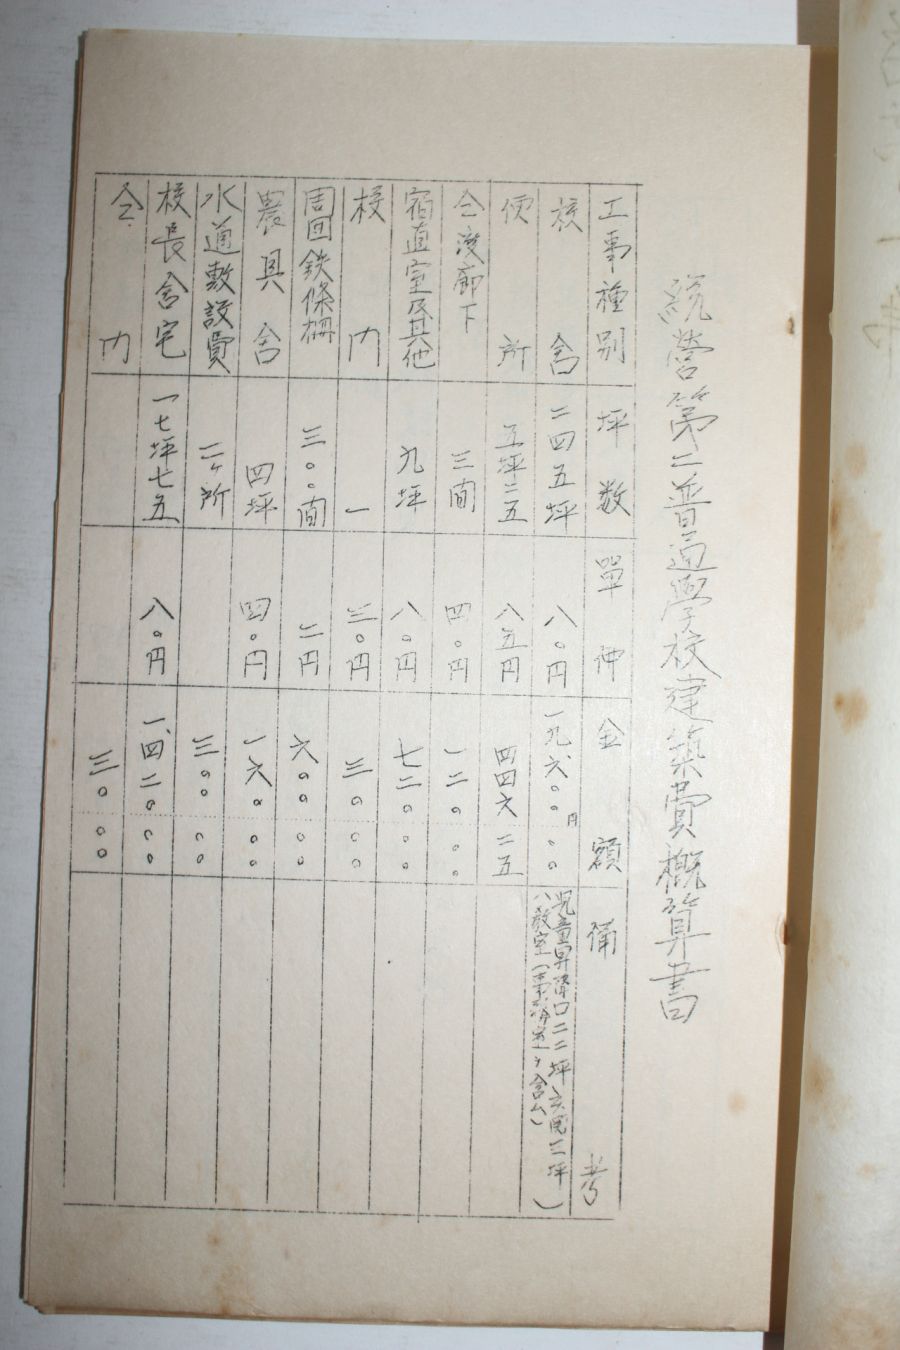 統營第二普通學校建築費概算書
工事種別 坪数 單価 金額 備考
校舎 二四五坪 八〇円 一九六〇〇円〇〇 児童昇降口二二坪 玄関三坪
八教室
便所 五坪二五 八五円 四四六二五
仝渡廊下 三間 四〇円 一二〇〇〇
宿直室及其他 九坪 八〇円 七二〇〇〇
校門 一 三〇円 三〇〇〇
周囲鉄條柵 三〇〇間 二円 六〇〇〇〇
農具舎 四坪 四〇円 一六〇〇〇
水道敷設費 二ヶ所 三〇〇〇〇
校長舎宅 一七坪七五 八〇円 一、四二〇〇〇
仝門 三〇〇〇